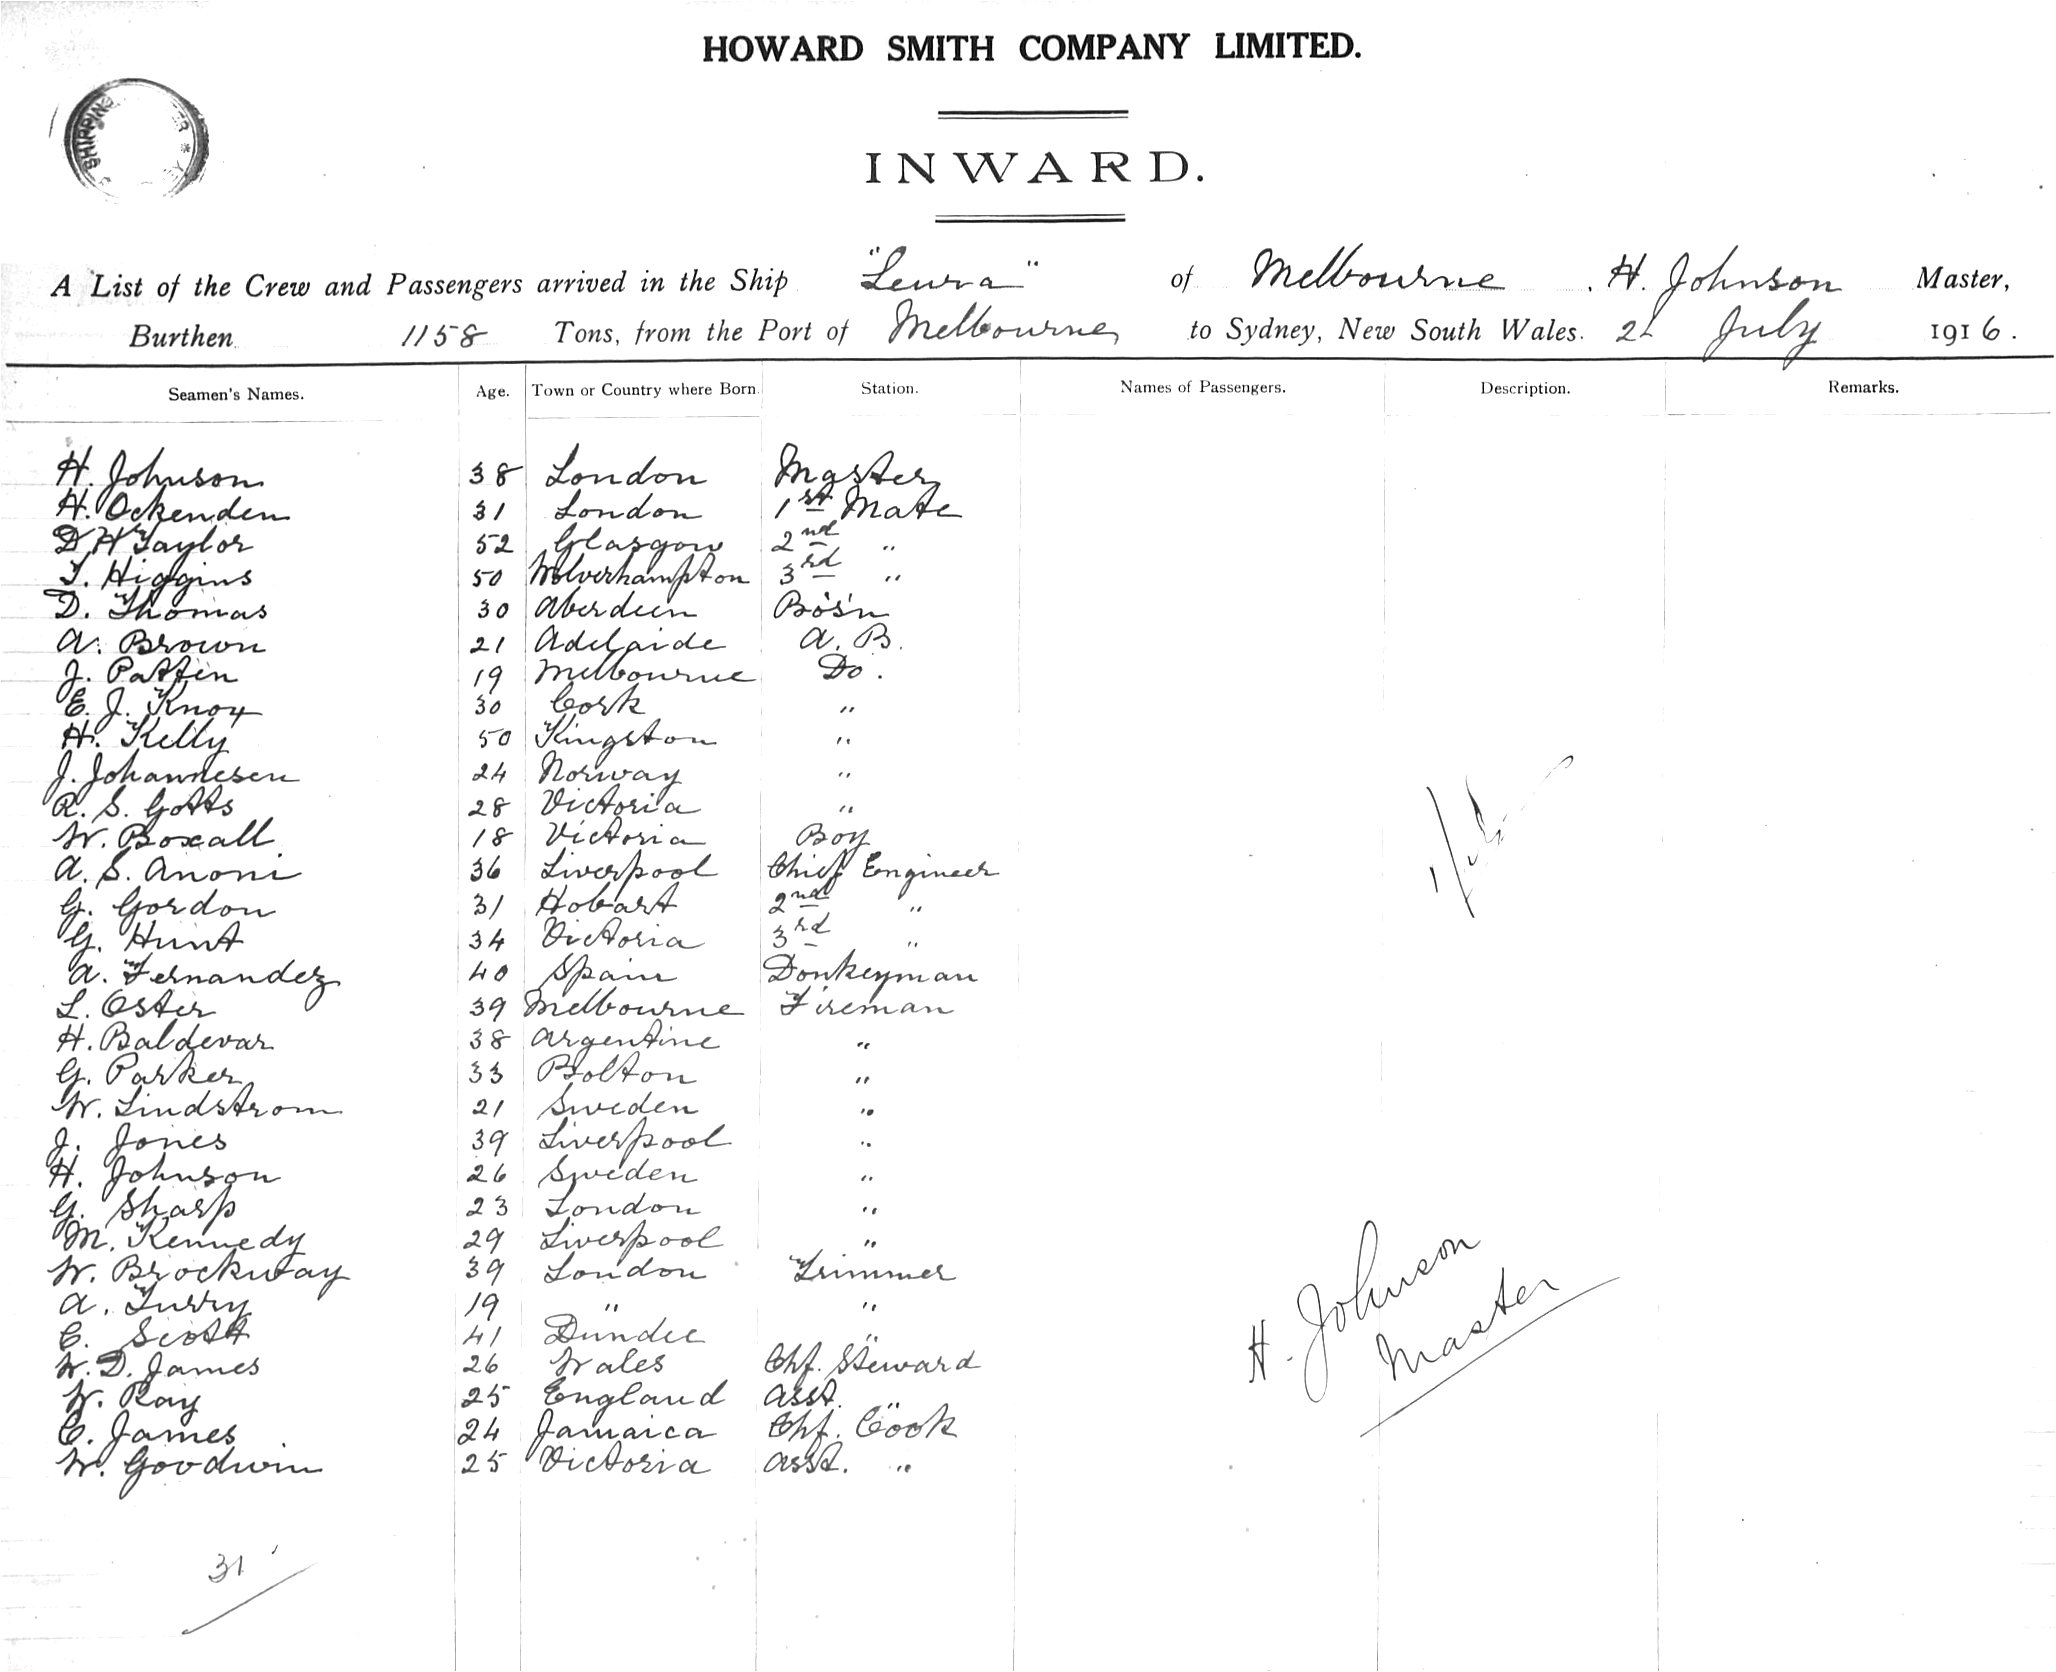 HOWARD SMITH COMPANY LIMITED.
SHIPPING
INWARD.
A List of the Crew and Passengers arrived in the Ship "Leura" of Melbourne . H. Johnson Master,
Burthen 1158 Tons, from the Port of Melbourne to Sydney, New South Wales. July 1916.
Seamen's Names. Age. Town or Country where Born. Station. Names of Passengers. Description. Remarks.
H. Johnson 38 London Master
H. Ockenden 31 London 1st Mate
D H Taylor 52 Glasgow 2nd "
T. Higgins 50 Wolverhampton 3rd "
D. Thomas 30 Aberdeen Bo's'n
A. Brown 21 Adelaide A. B.
J. Patten 19 Melbourne Do.
E. J. Knox 30 Cork "
H. Kelly 50 Kingston "
J. Johannesen 24 Norway "
R. S. Gotts 28 Victoria "
W. Boxall 18 Victoria Boy
A. S. Anoni 36 Liverpool Chief Engineer
G. Gordon 31 Hobart 2nd "
G. Hunt 34 Victoria 3rd "
A. Fernandez 40 Spain Donkeyman
L. Oster 39 Melbourne Fireman
H. Baldevar 38 Argentine "
G. Parker 33 Bolton "
W. Lindstrom 21 Sweden "
J. Jones 39 Liverpool "
H. Johnson 26 Sweden "
G. Sharp 23 London "
M. Kennedy 29 Liverpool "
W. Brockway 39 London Trimmer
A. Turry 19 " "
C. Scott 41 Dundee "
W. D. James 26 Wales Chf. Steward
W. Ray 25 England Asst. "
C. James 24 Jamaica Chf. Cook
W. Goodwin 25 Victoria Asst. "
H. Johnson
Master
31